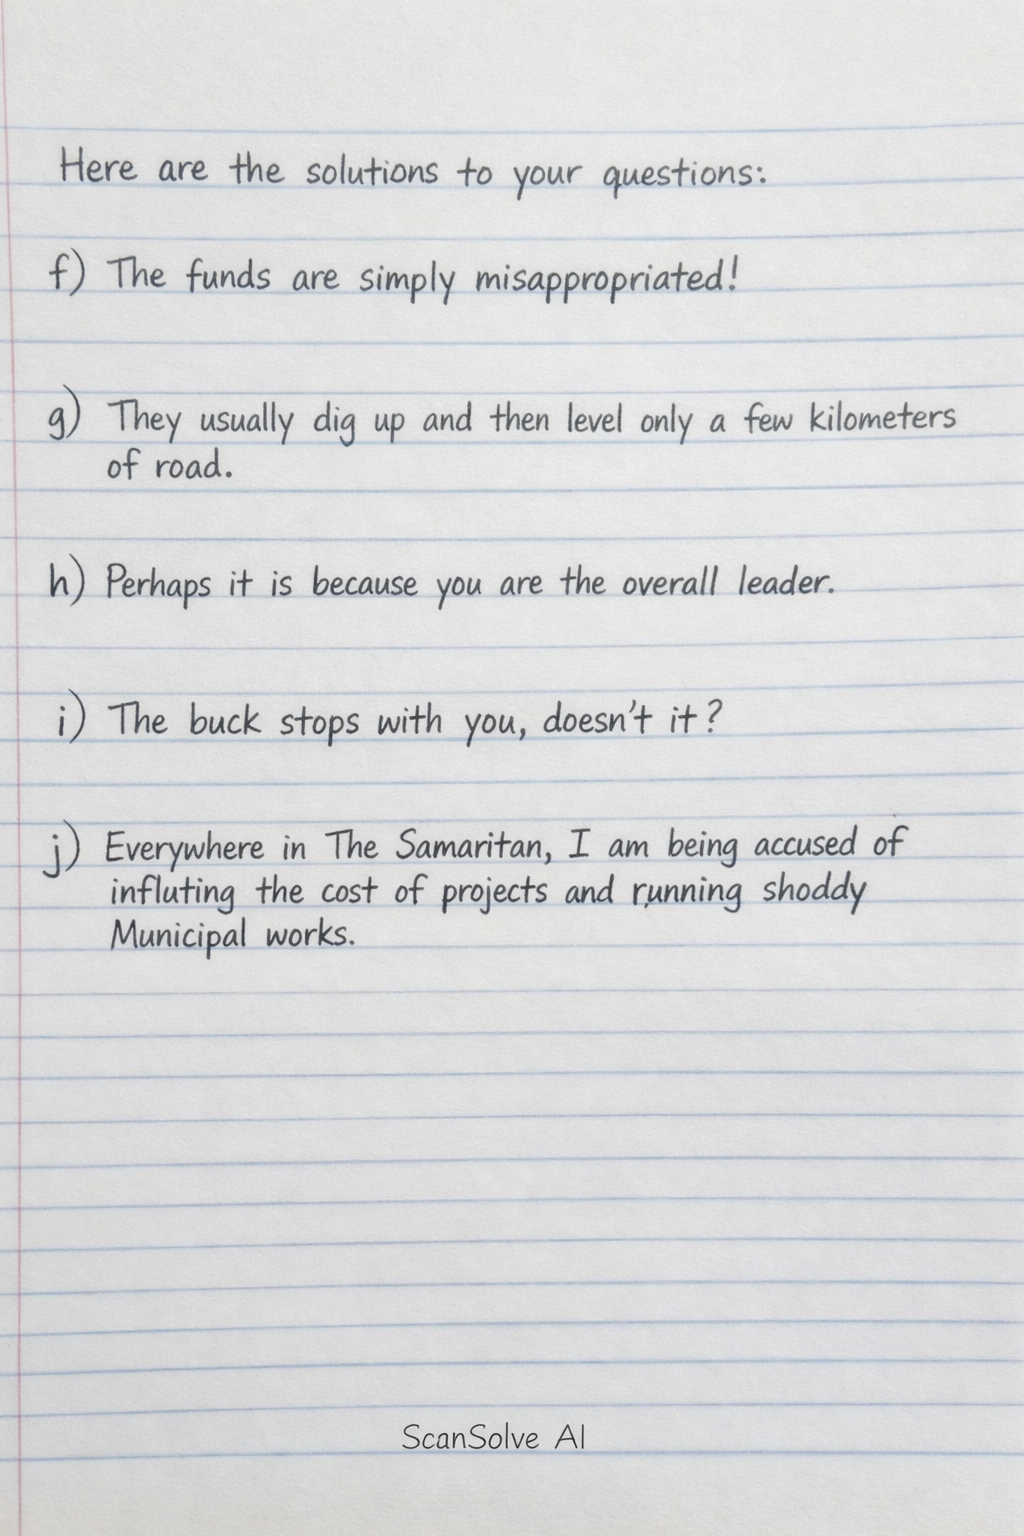 Here are the solutions to your questions:
f) The funds are simply misappropriated!
g) They usually dig up and then level only a few kilometers
of road.
h) Perhaps it is because you are the overall leader.
i) The buck stops with you, doesn't it?
j) Everywhere in The Samaritan, I am being accused of
influting the cost of projects and running shoddy
Municipal works.
ScanSolve AI